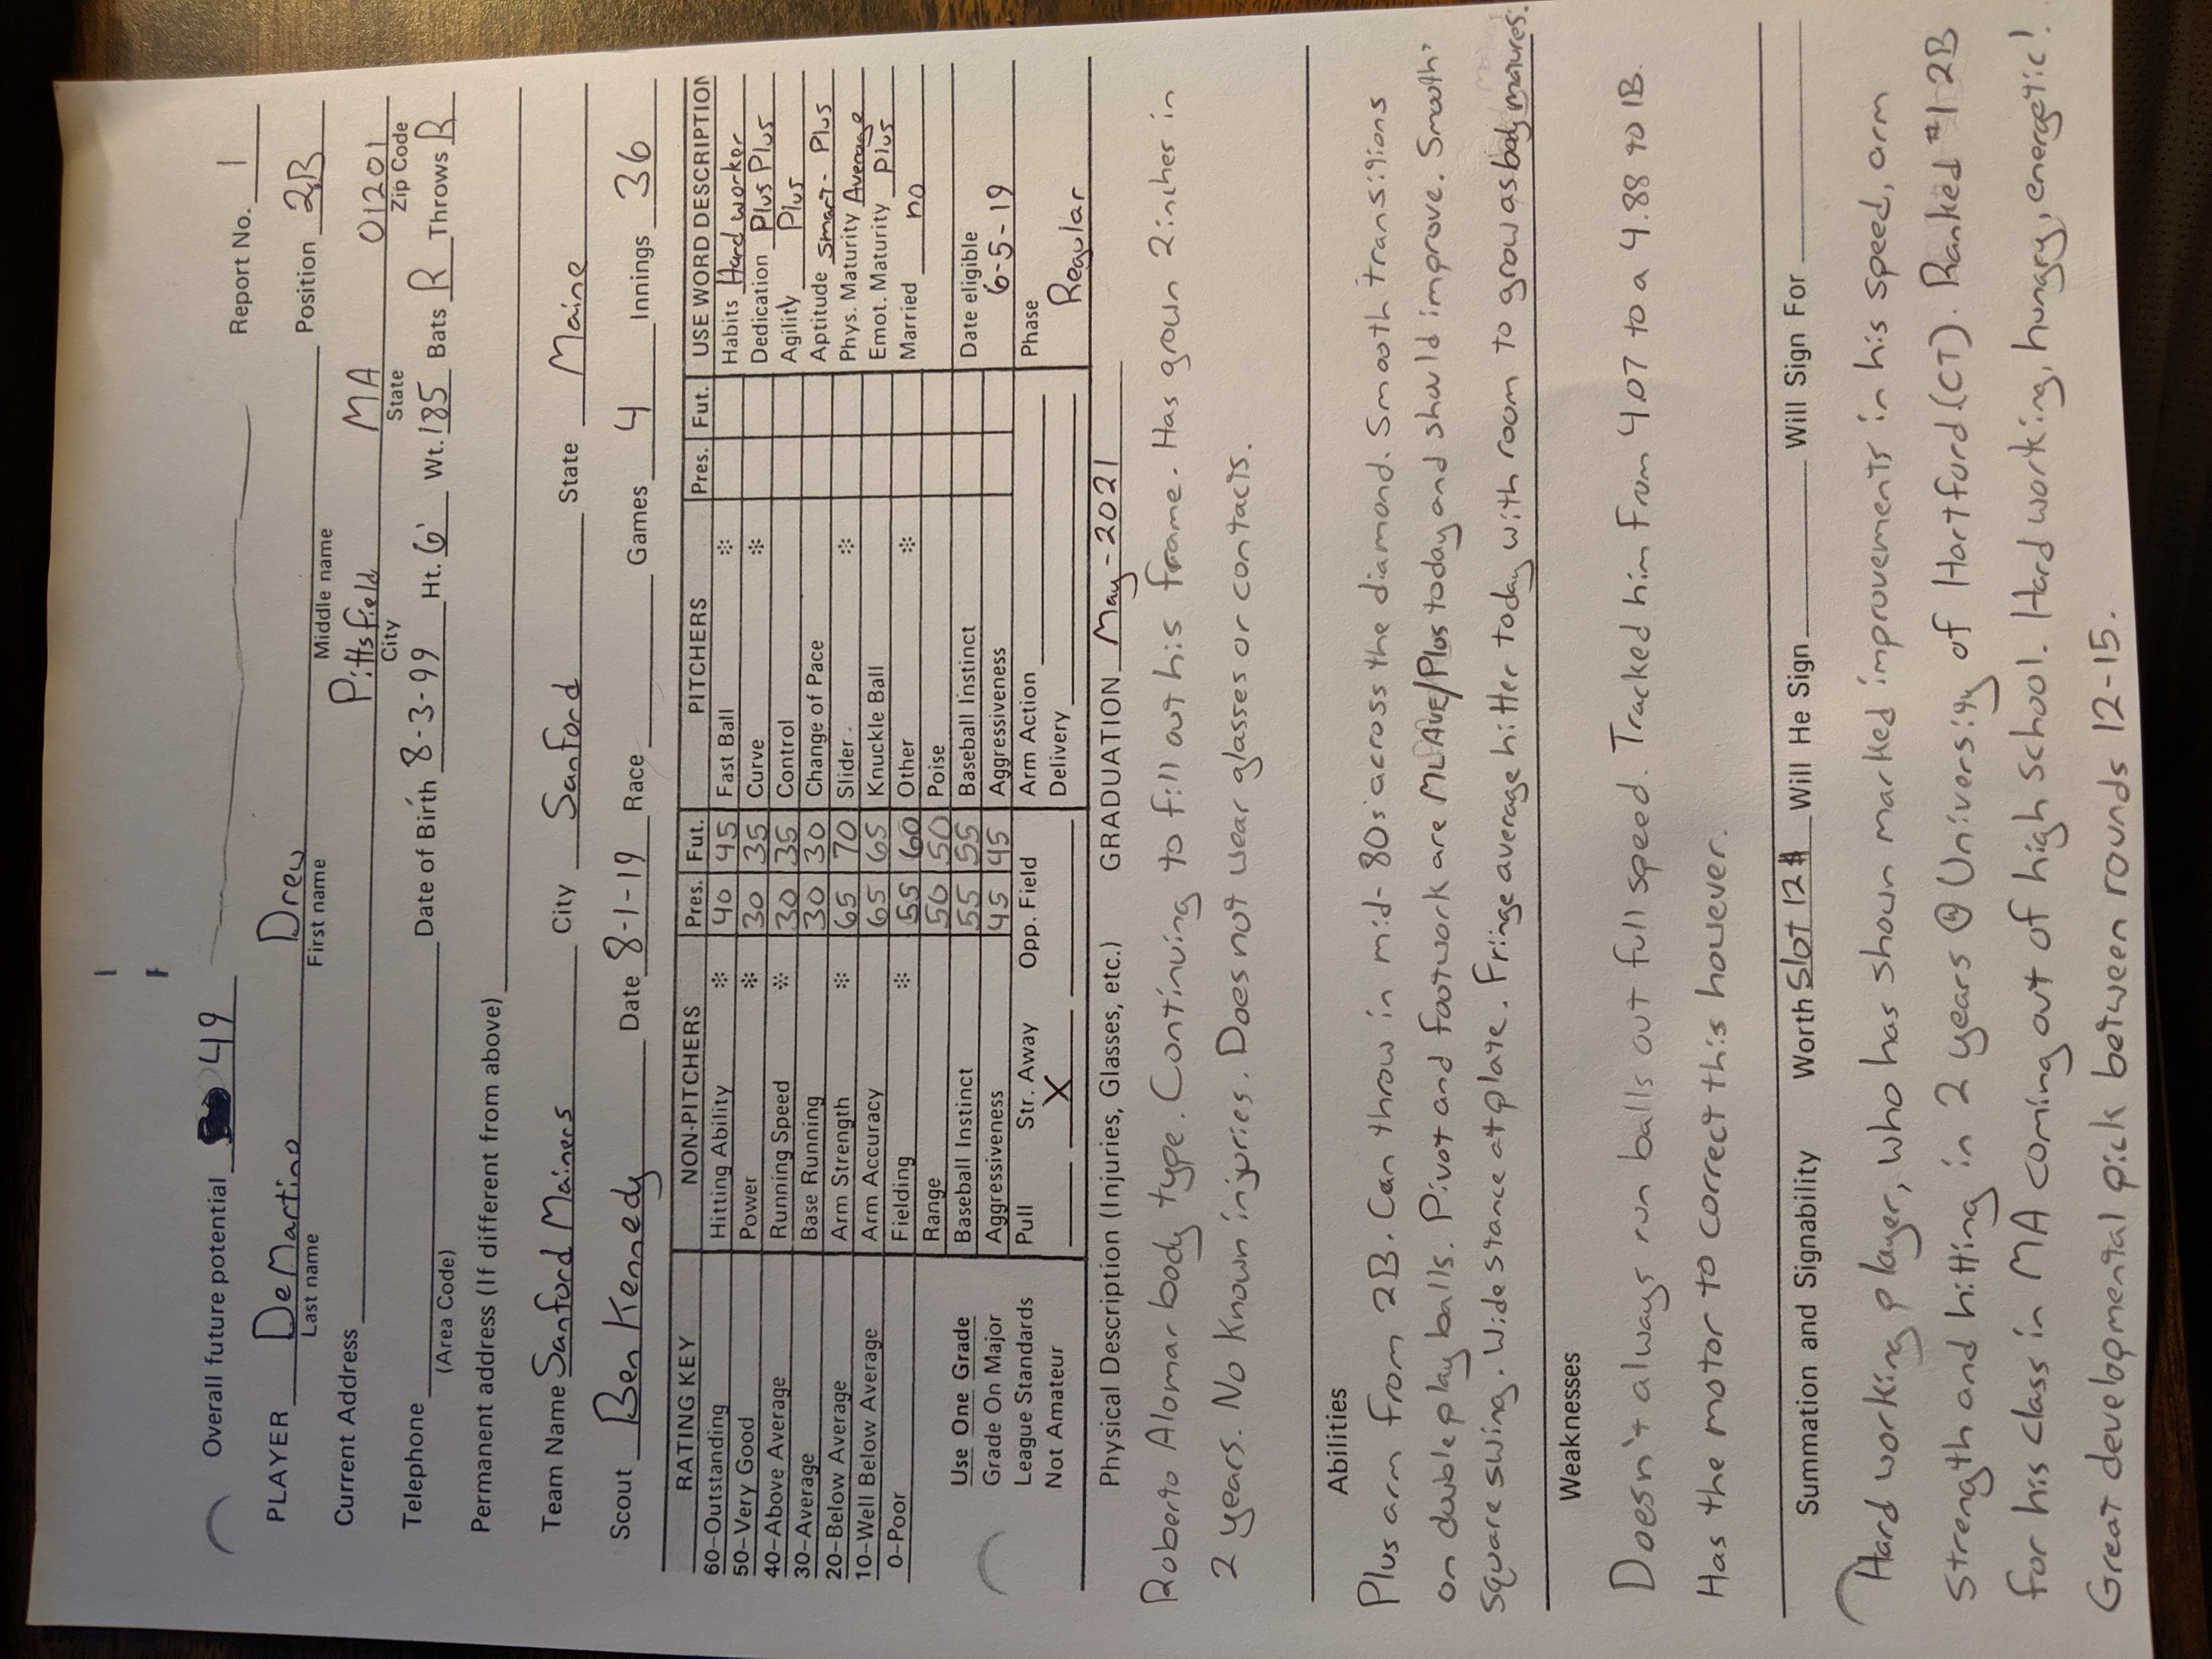 Report No. 1
Overall future potential 49
PLAYER DeMartino Drew Position 2B
Last name First name Middle name
Current Address Pittsfield MA 01201
City State Zip Code
Telephone Date of Birth 8-3-99 Ht. 6' Wt. 185 Bats R Throws R
(Area Code)
Permanent address (If different from above)
Team Name Sanford Mainers City Sanford State Maine
Scout Ben Kennedy Date 8-1-19 Race Games 4 Innings 36
RATING KEY NON-PITCHERS Pres. Fut. PITCHERS Pres. Fut. USE WORD DESCRIPTION
60-Outstanding Hitting Ability * 40 45 Fast Ball * Habits Hard worker
50-Very Good Power * 30 35 Curve * Dedication Plus Plus
40-Above Average Running Speed * 30 35 Control Agility Plus
30-Average Base Running 30 30 Change of Pace Aptitude smart- Plus
20-Below Average Arm Strength * 65 70 Slider * Phys. Maturity Average
10-Well Below Average Arm Accuracy 65 65 Knuckle Ball Emot. Maturity Plus
0-Poor Fielding * 55 60 Other * Married no
Range 50 50 Poise
Use One Grade Baseball Instinct 55 55 Baseball Instinct Date eligible
Grade On Major Aggressiveness 45 45 Aggressiveness 6-5-19
League Standards Pull Str. Away Opp. Field Arm Action Phase
Not Amateur X Delivery Regular
Physical Description (Injuries, Glasses, etc.) GRADUATION May-2021
Roberto Alomar body type. Continuing to fill out his frame. Has grown 2 inches in
2 years. No known injuries. Does not wear glasses or contacts.
Abilities
Plus arm from 2B. Can throw in mid-80s across the diamond. Smooth transitions
on double play balls. Pivot and footwork are MLAVE/Plus today and should improve. Smooth,
square swing. Wide stance at plate. Fringe average hitter today with room to grow as body matures.
Weaknesses
Doesn't always run balls out full speed. Tracked him from 4.07 to a 4.88 to 1B.
Has the motor to correct this however.
Summation and Signability Worth Slot 12 $ Will He Sign Will Sign For
Hard working player, who has shown marked improvements in his speed, arm
strength and hitting in 2 years @ University of Hartford (CT). Ranked #1 2B
for his class in MA coming out of high school. Hard working, hungry, energetic!
Great developmental pick between rounds 12-15.